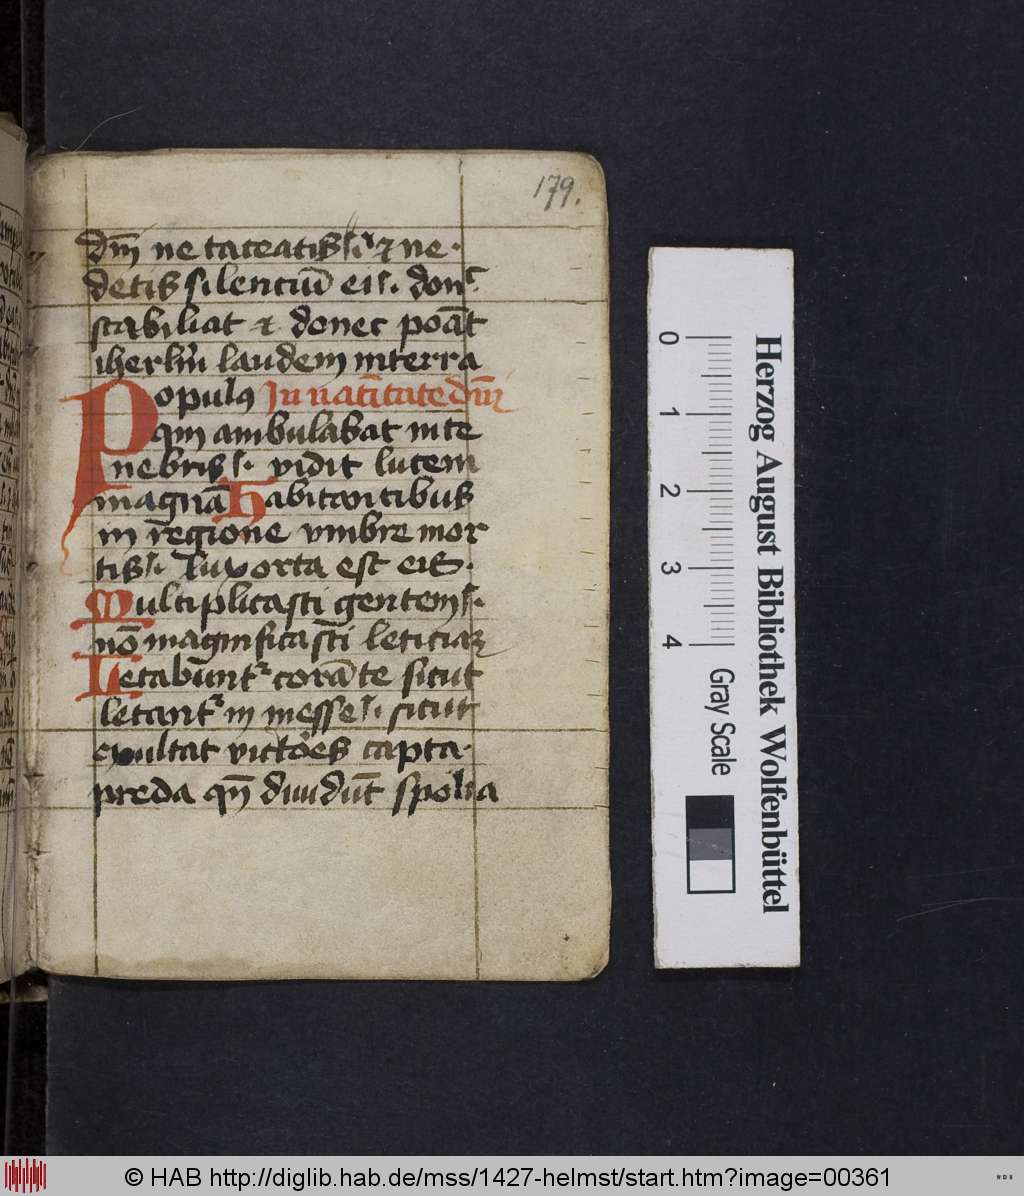 179.
dm̄ ne taceatis ⁊ ne
detis silenciū ei donc
stabiliat ⁊ donec poāt
iherlm̄ laudem in terra
Populus In natiuitate dm̄
qm ambulabat in te
nebris vidit lucem
magnā Habitantibus
in regione vmbre mor
tis lux orta est eis.
Multiplicasti gentem
nō magnificasti leticia
Letabunt corā te sicut
letant in messe sicut
exultat victores capta
preda qn̄ diuidūt spolia
0 1 2 3 4
Gray Scale
Herzog August Bibliothek Wolfenbüttel
© HAB http://diglib.hab.de/mss/1427-helmst/start.htm?image=00361